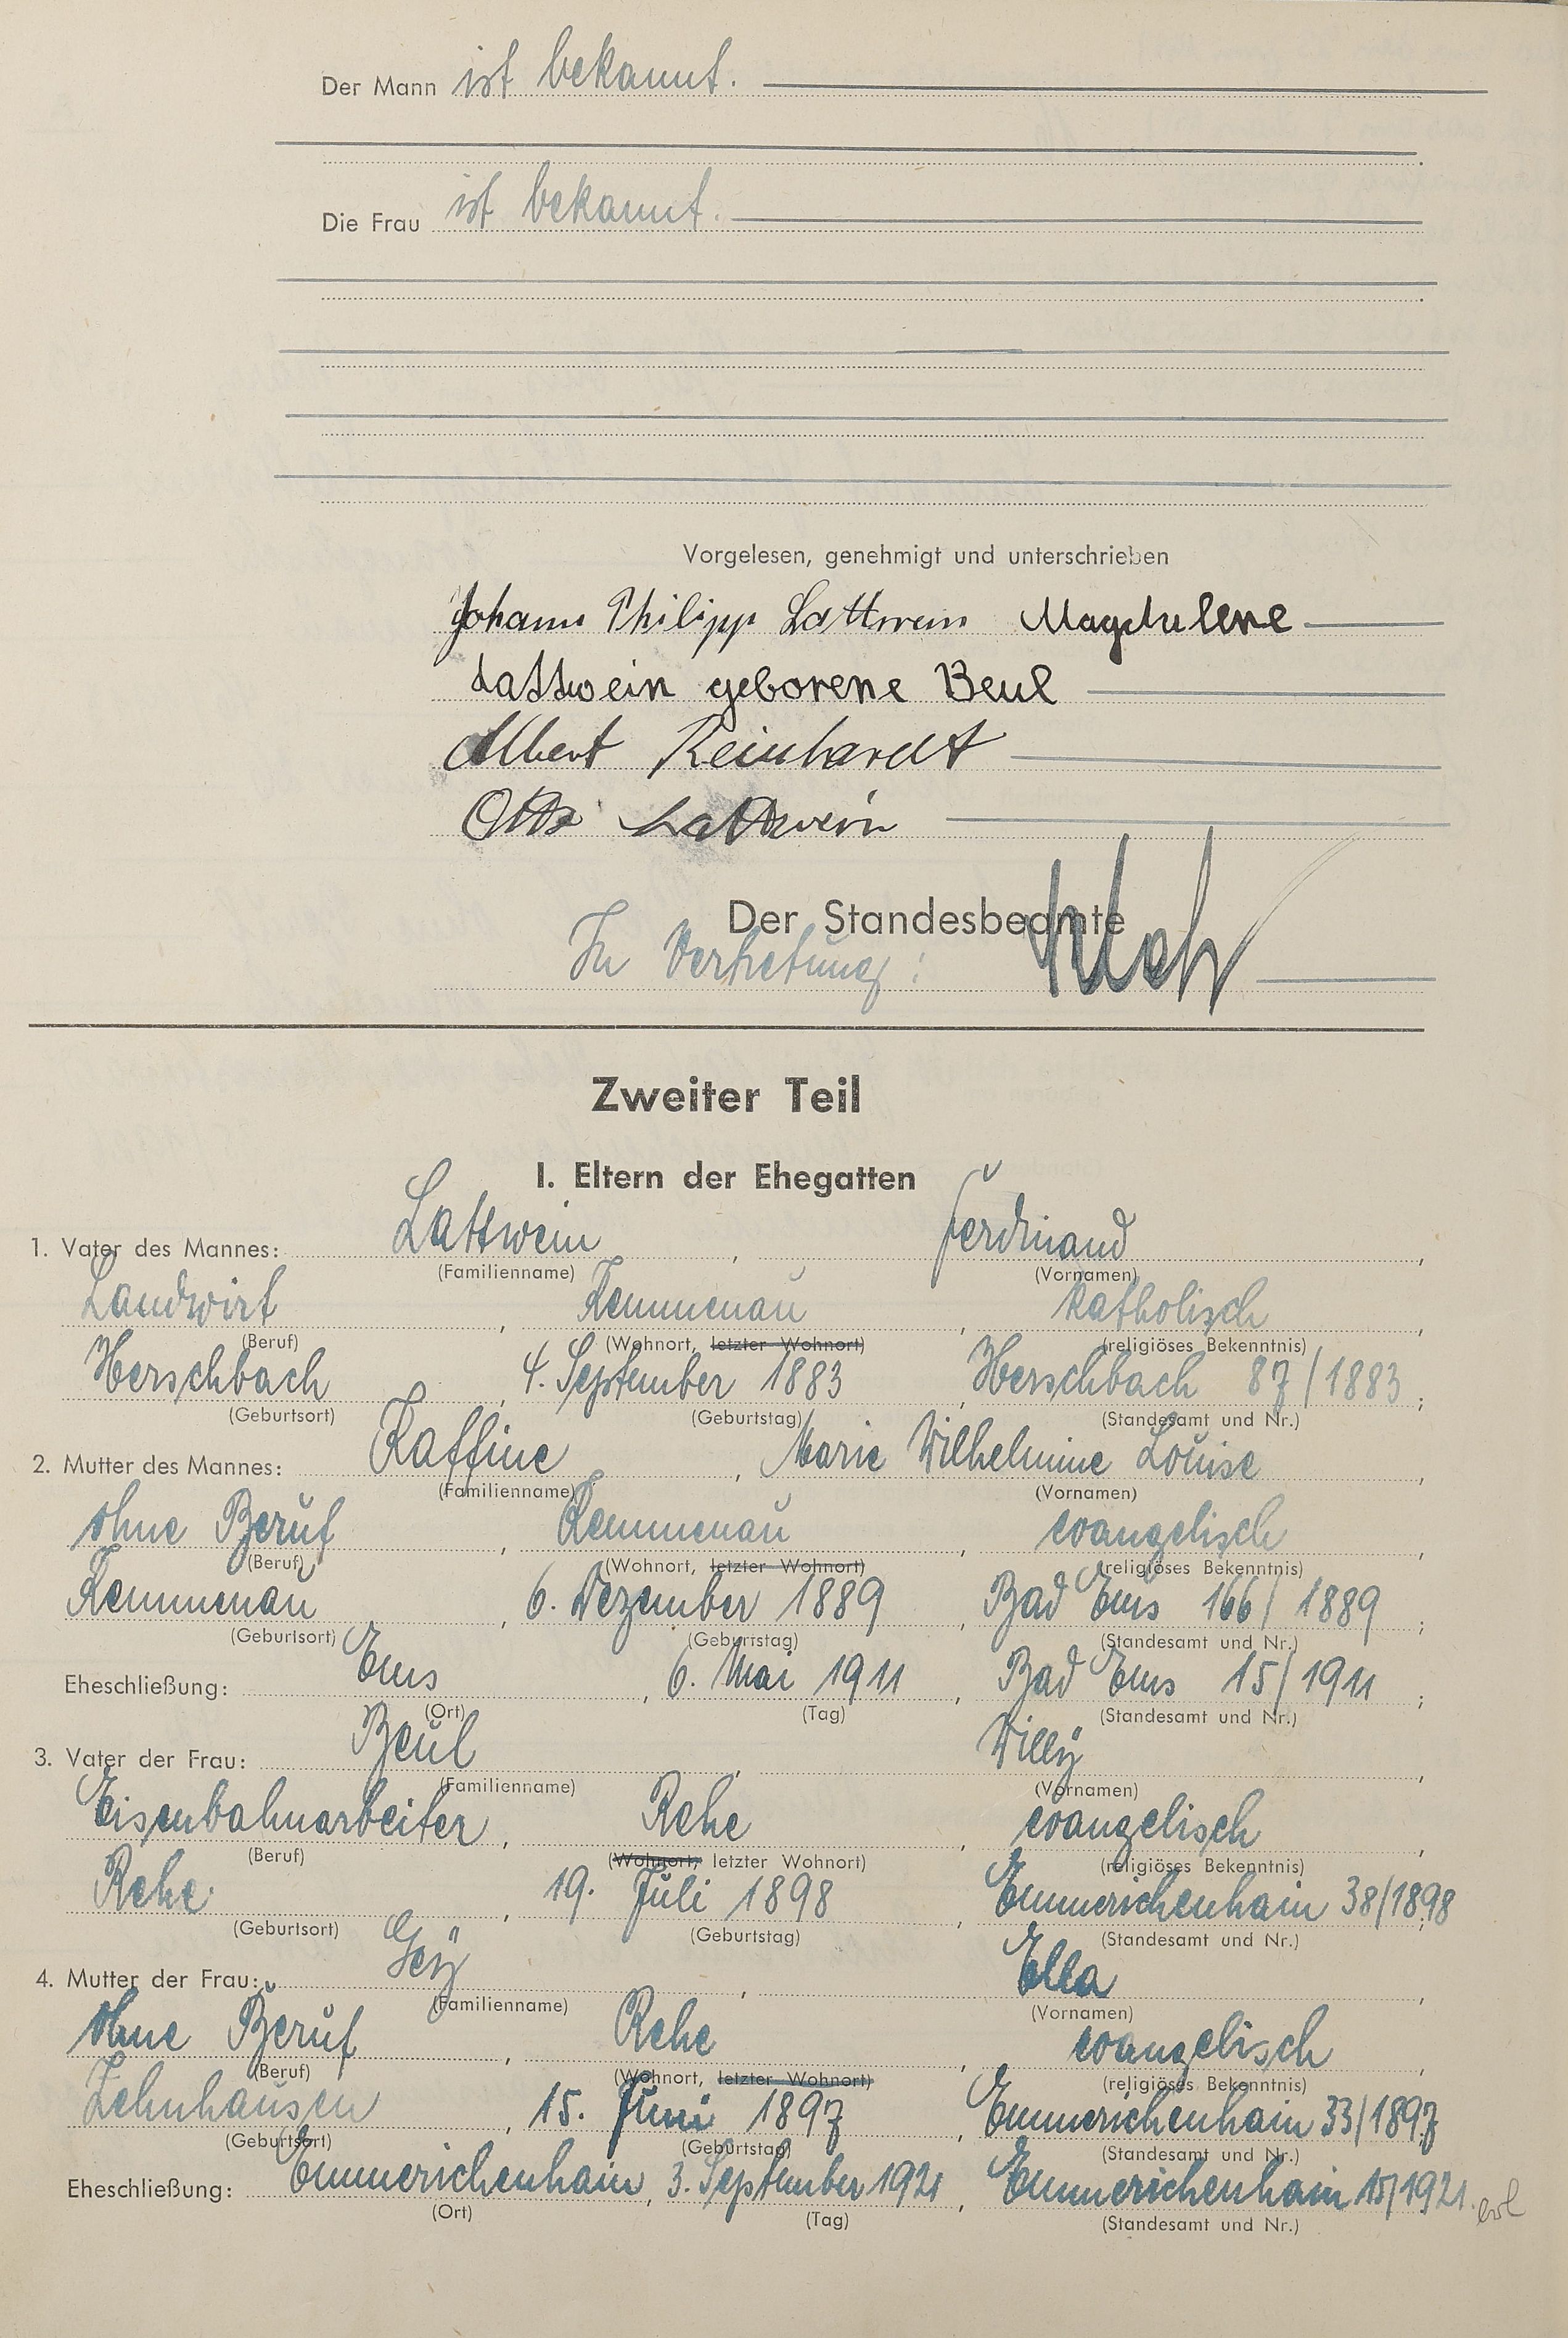 Der Mann ist bekannt.
Die Frau ist bekannt.
Vorgelesen, genehmigt und unterschrieben
Johann Philipp Lattwein Magdalene
Lattwein geborene Beul
Albert Reinhardt
Otto Lattwein
Der Standesbeamte
In Vertretung:
Zweiter Teil
I. Eltern der Ehegatten
1. Vater des Mannes: Lattwein, Ferdinand,
(Familienname) (Vornamen)
Landwirt, Kemmenau, katholisch,
(Beruf) (Wohnort, letzter Wohnort) (religiöses Bekenntnis)
Herschbach, 4. September 1883, Herschbach 87/1883;
(Geburtsort) (Geburtstag) (Standesamt und Nr.)
2. Mutter des Mannes: Kaffine, Marie Wilhelmine Louise,
(Familienname) (Vornamen)
ohne Beruf, Kemmenau, evangelisch,
(Beruf) (Wohnort, letzter Wohnort) (religiöses Bekenntnis)
Kemmenau, 6. Dezember 1889, Bad Ems 166/1889;
(Geburtsort) (Geburtstag) (Standesamt und Nr.)
Eheschließung: Ems, 6. Mai 1911, Bad Ems 15/1911;
(Ort) (Tag) (Standesamt und Nr.)
3. Vater der Frau: Beul, Willy,
(Familienname) (Vornamen)
Eisenbahnarbeiter, Rehe, evangelisch,
(Beruf) (Wohnort, letzter Wohnort) (religiöses Bekenntnis)
Rehe, 19. Juli 1898, Emmerichenhain 38/1898;
(Geburtsort) (Geburtstag) (Standesamt und Nr.)
4. Mutter der Frau: Geÿ, Ella,
(Familienname) (Vornamen)
ohne Beruf, Rehe, evangelisch,
(Beruf) (Wohnort, letzter Wohnort) (religiöses Bekenntnis)
Zehnhausen, 15. Juni 1897, Emmerichenhain 33/1897
(Geburtsort) (Geburtstag) (Standesamt und Nr.)
Eheschließung: Emmerichenhain, 3. September 1921, Emmerichenhain 15/1921. erl
(Ort) (Tag) (Standesamt und Nr.)